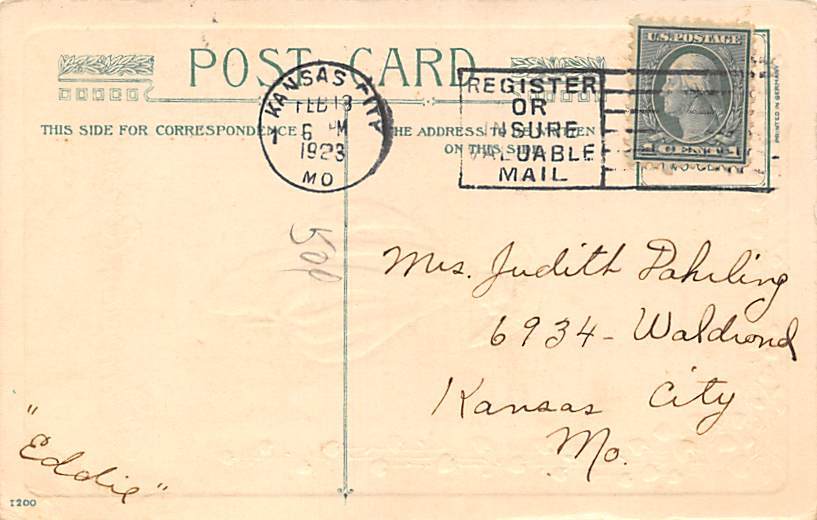 POST CARD
THIS SIDE FOR CORRESPONDENCE
THE ADDRESS TO BE WRITTEN
ON THIS SIDE
KANSAS CITY
1
FEB 13
6 PM
1923
MO
REGISTER
OR
INSURE
VALUABLE
MAIL
U.S. POSTAGE
1 CENT 1
PRINTED IN GERMANY
Mrs. Judith Dahling
6934 - Waldrond
Kansas City
Mo.
"Eddie"
1200